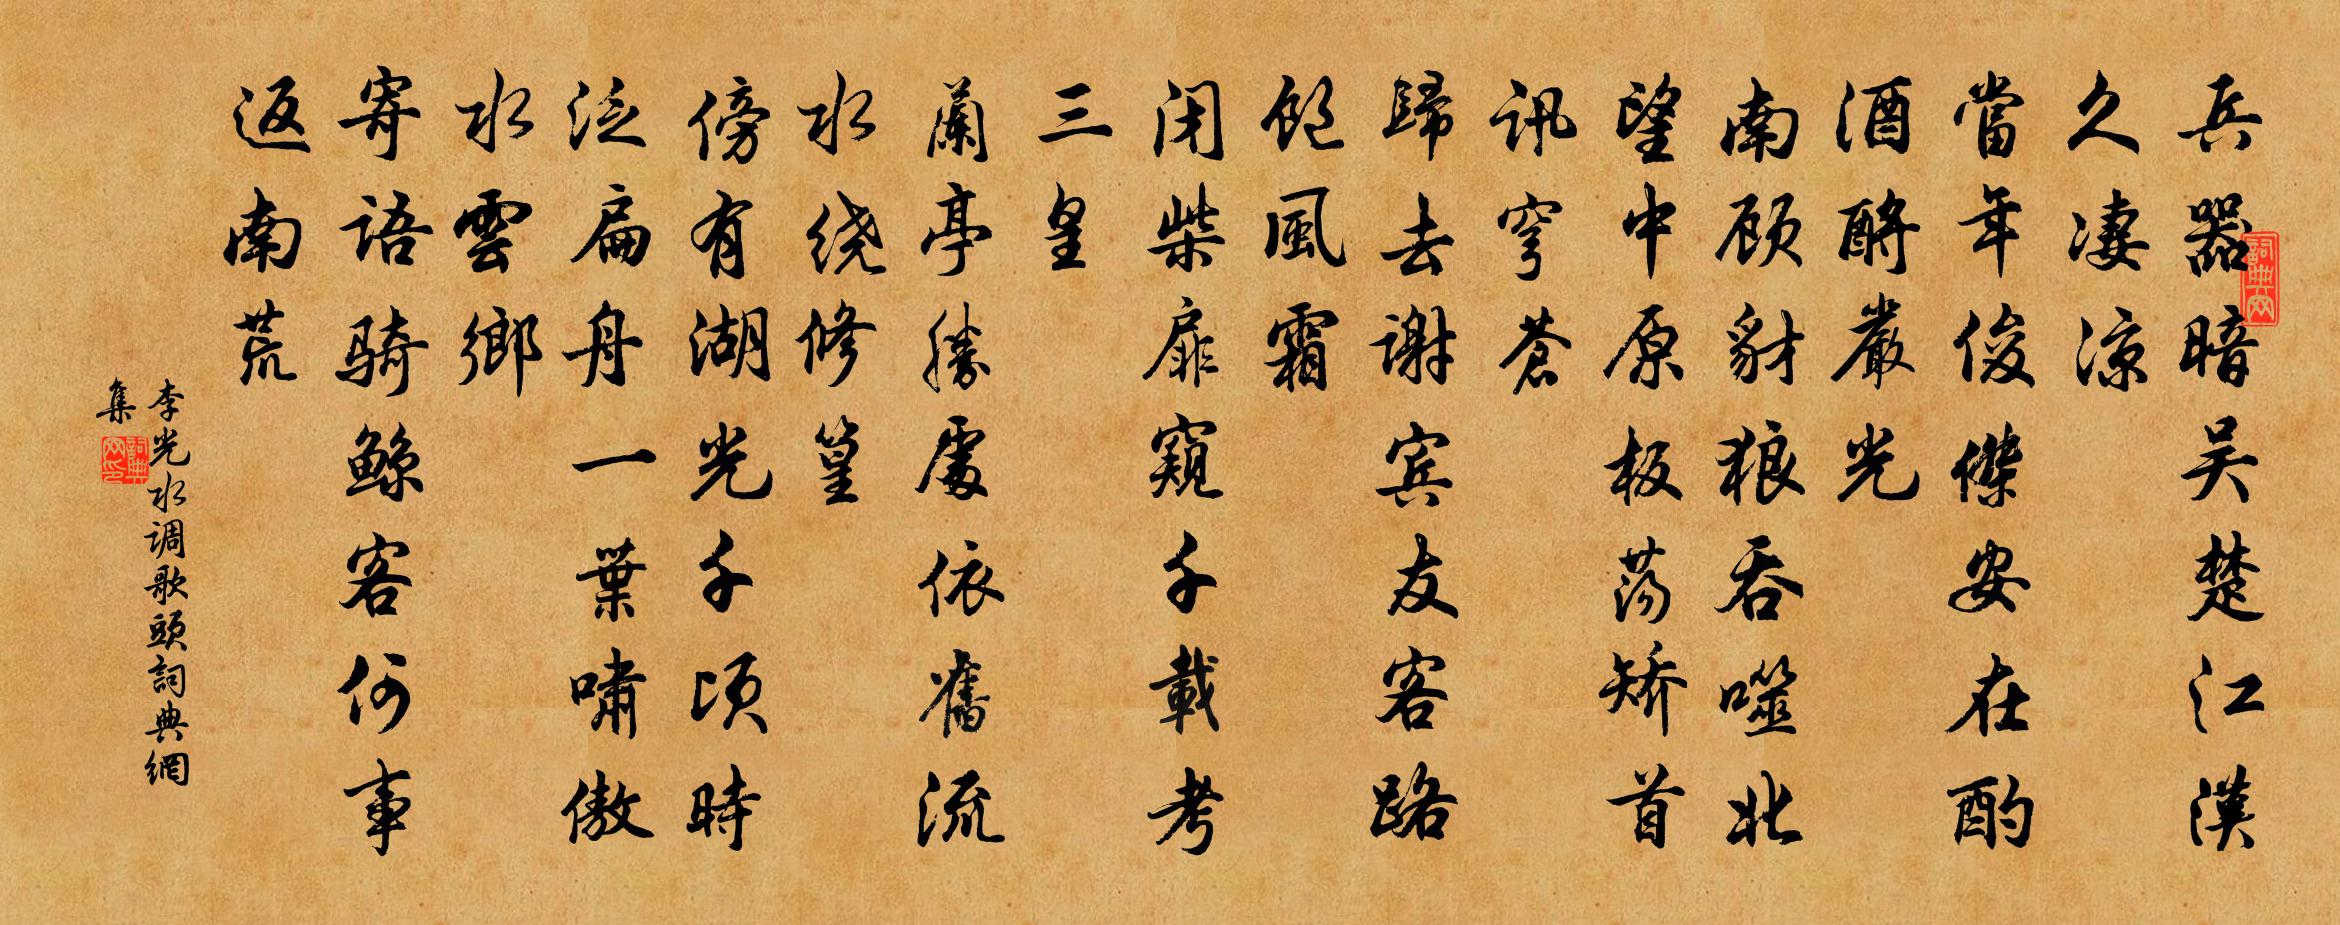 兵器暗吴楚江漢
久凄涼
當年俊傑安在酌
酒酹嚴光
南顾豺狼吞噬北
望中原板荡矫首
訊穹蒼
歸去謝宾友客路
飽風霜
闭柴扉窺千載考
三皇
蘭亭勝處依舊流
水绕修篁
傍有湖光千顷時
泛扁舟一葉啸傲
水雲鄉
寄语骑鲸客何事
返南荒
李光水调歌頭詞典網
集
詞典网
詞典网印